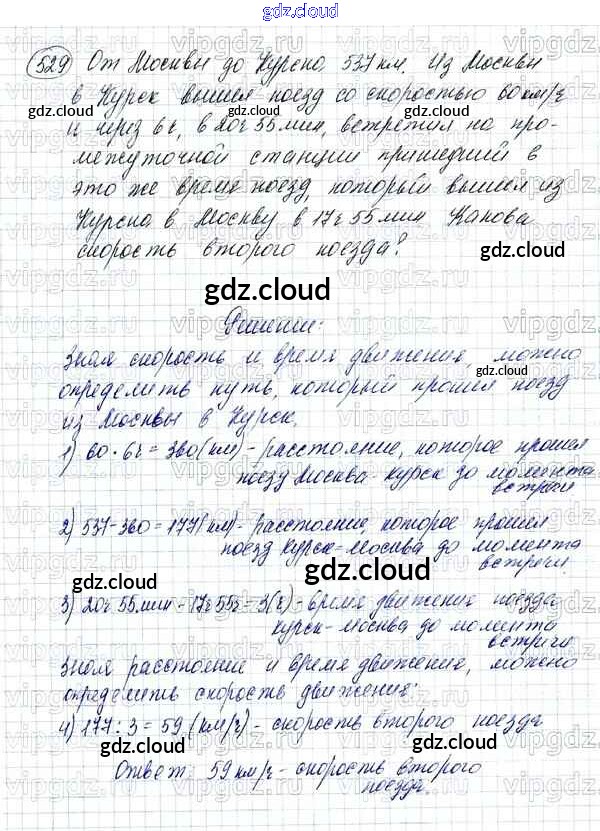 gdz.cloud
529 От Москвы до Курска 537 км. Из Москвы
в Курск вышел поезд со скоростью 60 км/ч
и через 6ч, в 20ч 55 мин, встретил на про-
межуточной станции пришедший в
это же время поезд, который вышел из
Курска в Москву в 17ч 55 мин Какова
скорость второго поезда?
gdz.cloud
Решение:
Зная скорость и время движения, можно
определить путь, который прошел поезд
из Москвы в Курск.
1) 60 · 6ч = 360 (км) - расстояние, которое прошел
поезд Москва - Курск до момента
встречи
2) 537 - 360 = 177 (км) - расстояние, которое прошел
поезд Курск - Москва до момента
встречи.
3) 20ч 55 мин - 17ч 55ч = 3(ч) - время движения поезда
Курск - Москва до момента
встречи
Зная расстояние и время движения, можно
определить скорость движения:
4) 177 : 3 = 59 (км/ч) - скорость второго поезда
Ответ 59 км/ч - скорость второго
поезда.